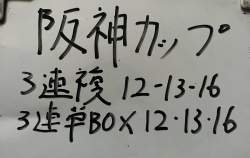 阪神カップ
3連複 12-13-16
3連単BOX 12・13・16